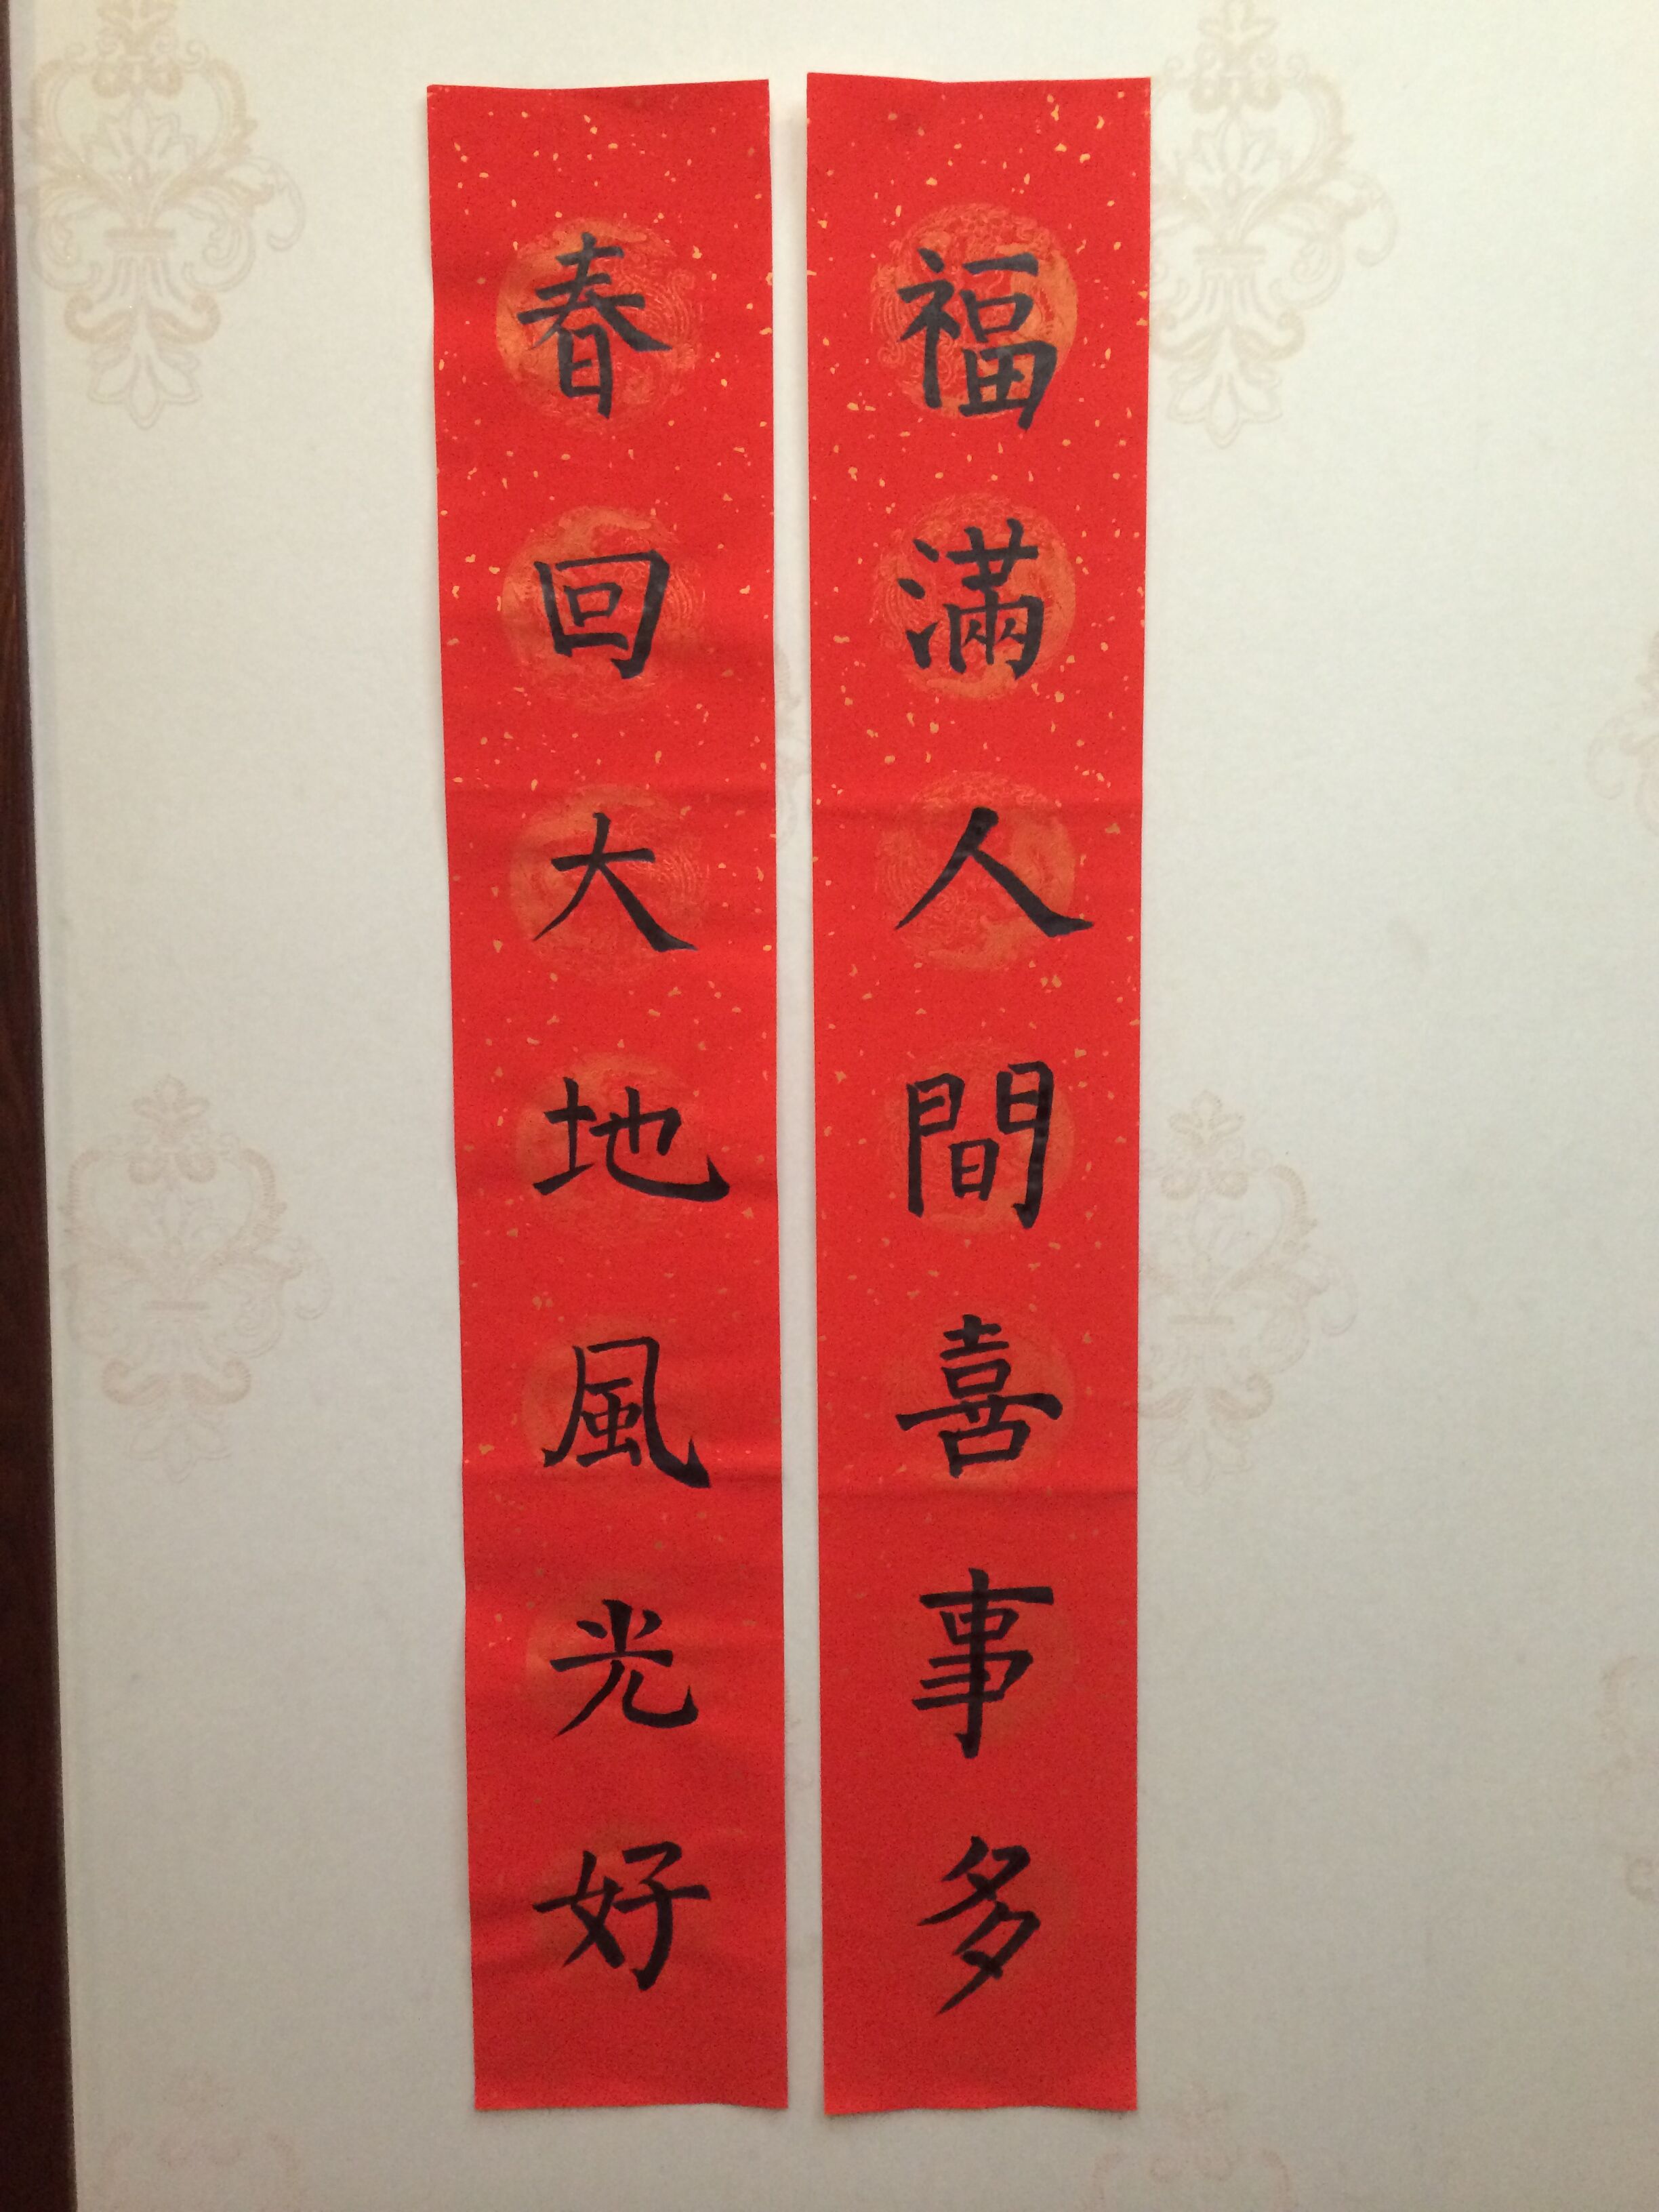 福滿人間喜事多
春回大地風光好